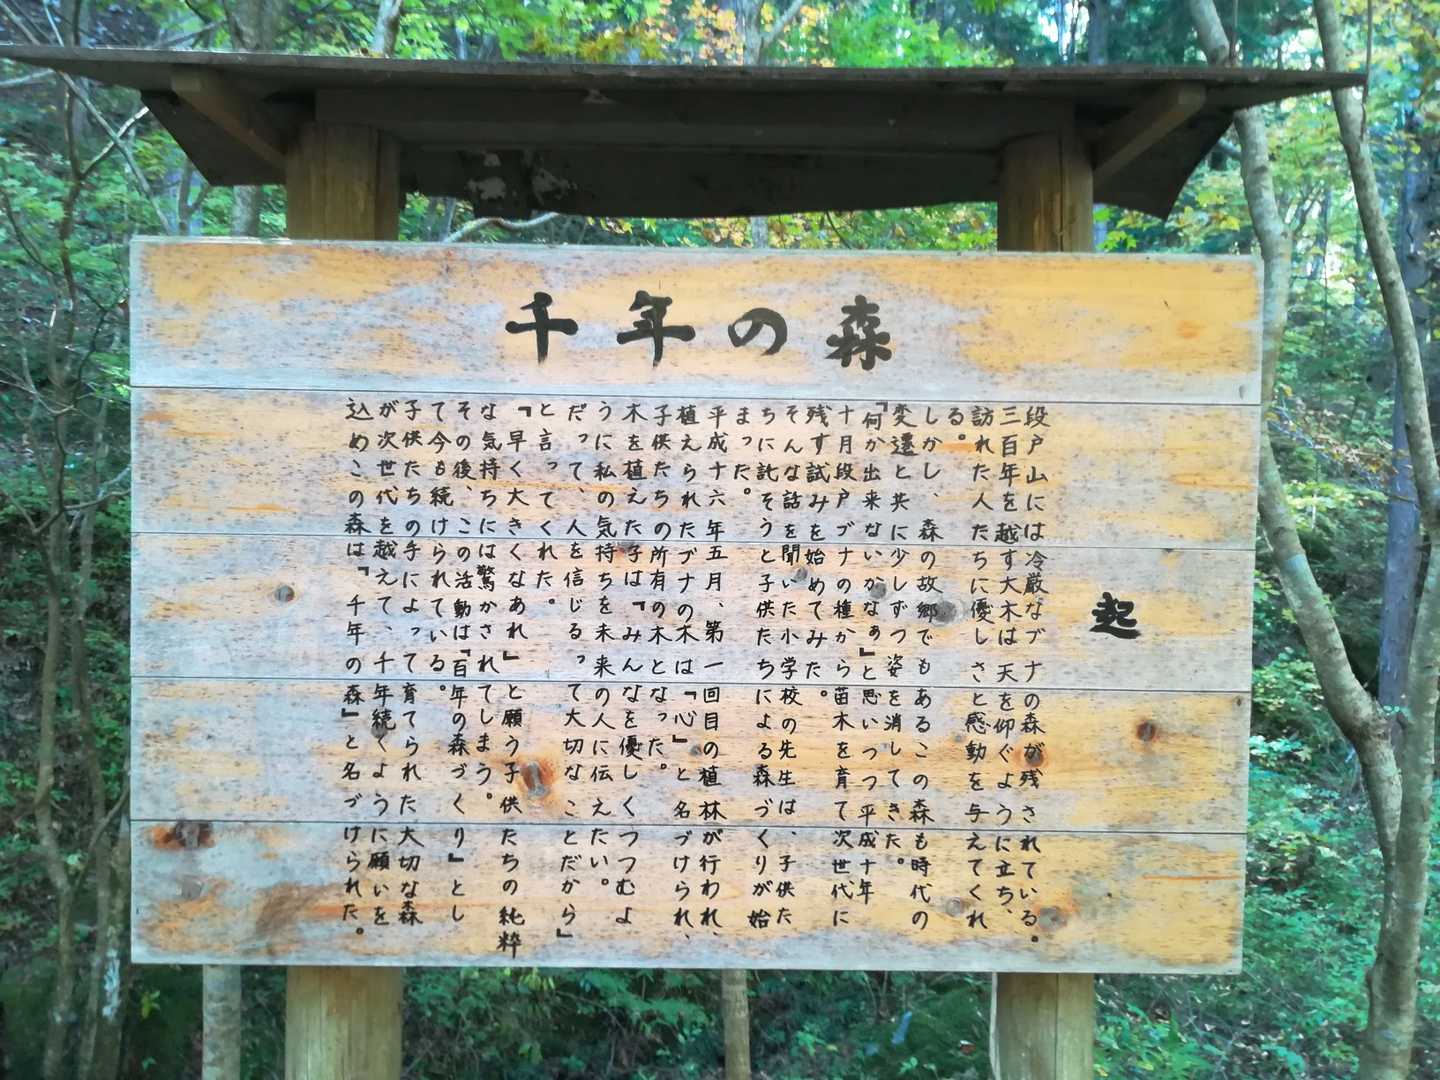 千年の森
起
段戸山には冷厳なブナの森が残されている。
三百年を越す大木は天を仰ぐように立ち、
訪れた人たちに優しさと感動を与えてくれ
る。
しかし、森の故郷でもあるこの森も時代の
変遷と共に少しずつ姿を消してきた。
『何か出来ないかなぁ』と思いつつ平成十年
十月段戸ブナの種から苗木を育て次世代に
残す試みを始めてみた。
そんな話を聞いた小学校の先生は、子供た
ちに託そうと子供たちによる森づくりが始
まった。
平成十六年五月、第一回目の植林が行われ、
植えられたブナの木は『心』と名づけられ、
子供たちの所有の木となった。
木を植えた子は『みんなを優しくつつむよ
うに私の気持ちを未来の人に伝えたい。
だって、人を信じるって大切なことだから』
と言ってくれた。
『早く大きくなあれ』と願う子供たちの純粋
な気持ちには驚かされてしまう。
その後、この活動は『百年の森づくり』とし
て今も続けられている。
子供たちの手によって育てられた大切な森
が次世代を越えて、千年続くように願いを
込めこの森は『千年の森』と名づけられた。